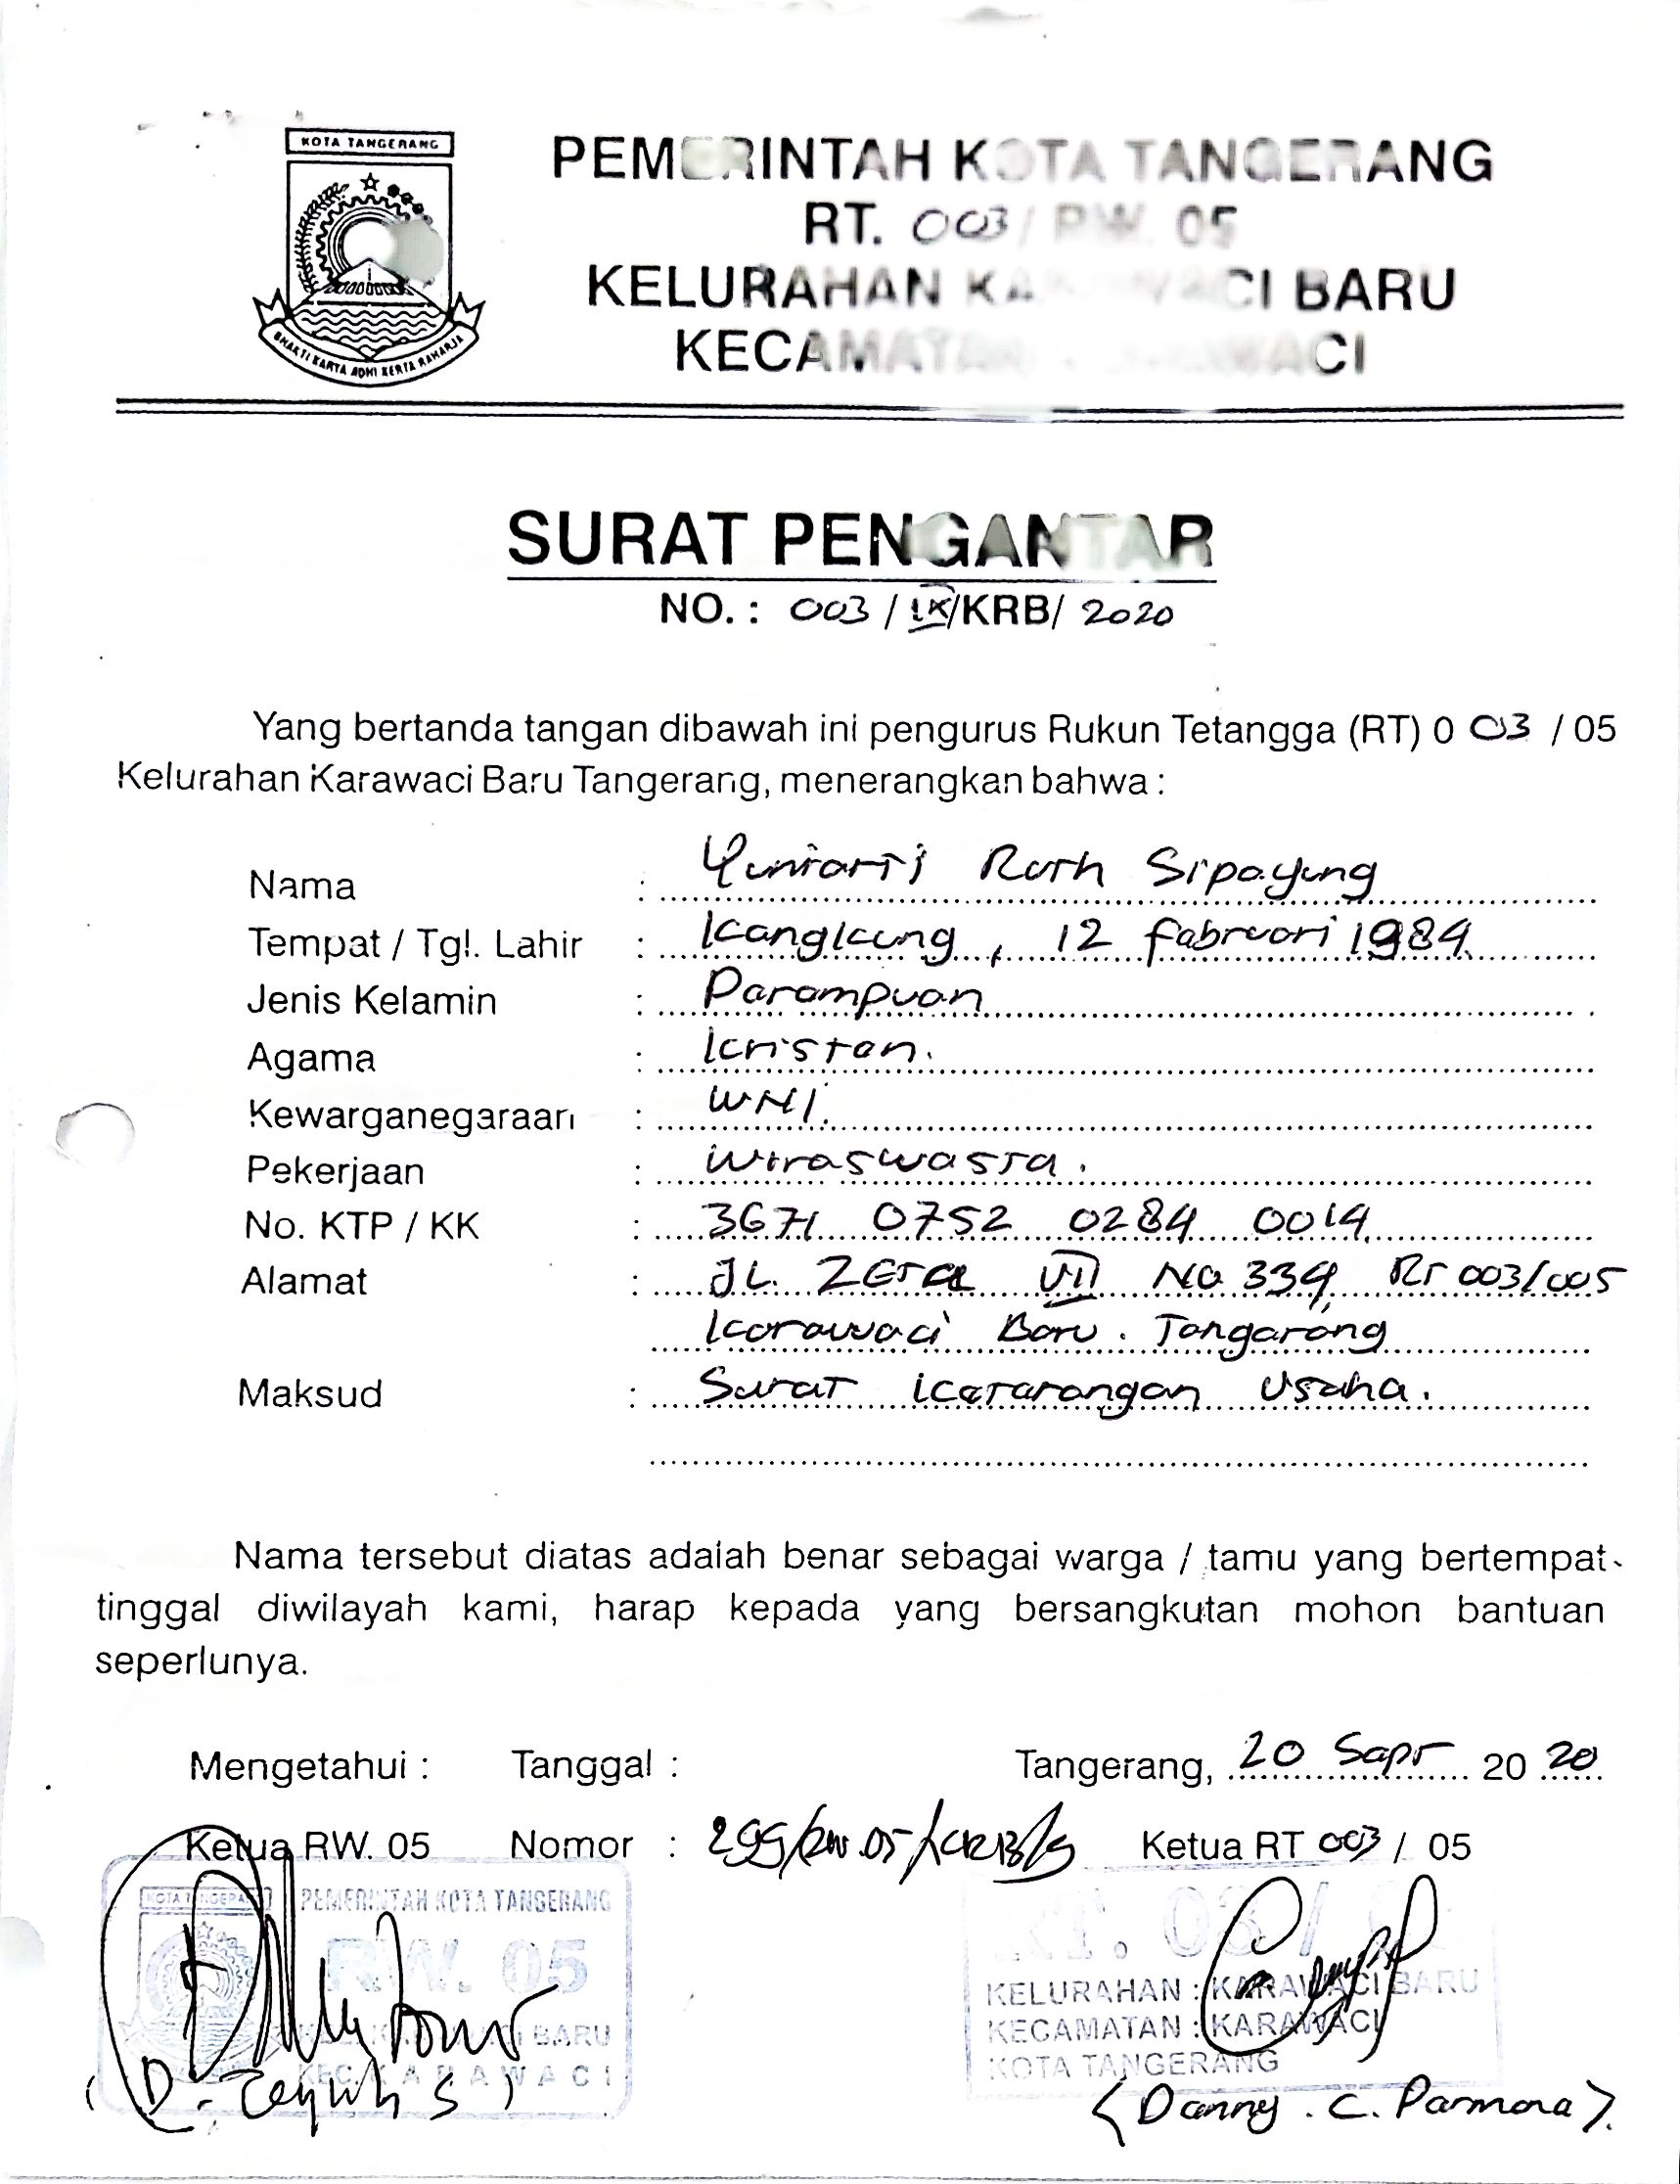 KOTA TANGERANG
BHAKTI KARYA ADHI KERTA RAHARJA
PEMERINTAH KOTA TANGERANG
RT. 003 / RW. 05
KELURAHAN KARAWACI BARU
KECAMATAN KARAWACI
SURAT PENGANTAR
NO. : 003 / IX/KRB/ 2020
Yang bertanda tangan dibawah ini pengurus Rukun Tetangga (RT) 0 03 / 05
Kelurahan Karawaci Baru Tangerang, menerangkan bahwa :
Nama : Yuniarti Ruth Sipayung
Tempat / Tgl. Lahir : Kangkung, 12 Februari 1984
Jenis Kelamin : Perempuan
Agama : Kristen.
Kewarganegaraan : WNI.
Pekerjaan : Wiraswasta.
No. KTP / KK : 3671 0752 0284 0014
Alamat : JL. Zeta VII No 334, RT 003/005
Karawaci Baru. Tangerang
Maksud : Surat keterangan Usaha.
Nama tersebut diatas adalah benar sebagai warga / tamu yang bertempat
tinggal diwilayah kami, harap kepada yang bersangkutan mohon bantuan
seperlunya.
Mengetahui : Tanggal : Tangerang, 20 Sept 20 20
Ketua RW. 05 Nomor : 299/RW.05/KRB/9 Ketua RT 003 / 05
KOTA TANGERANG PEMERINTAH KOTA TANGERANG
RW. 05
BARU
KEC. KARAWACI
RT. 03 /
KELURAHAN : KARAWACI BARU
KECAMATAN : KARAWACI
KOTA TANGERANG
(D. Teguh S)
(Danny. C. Permana).